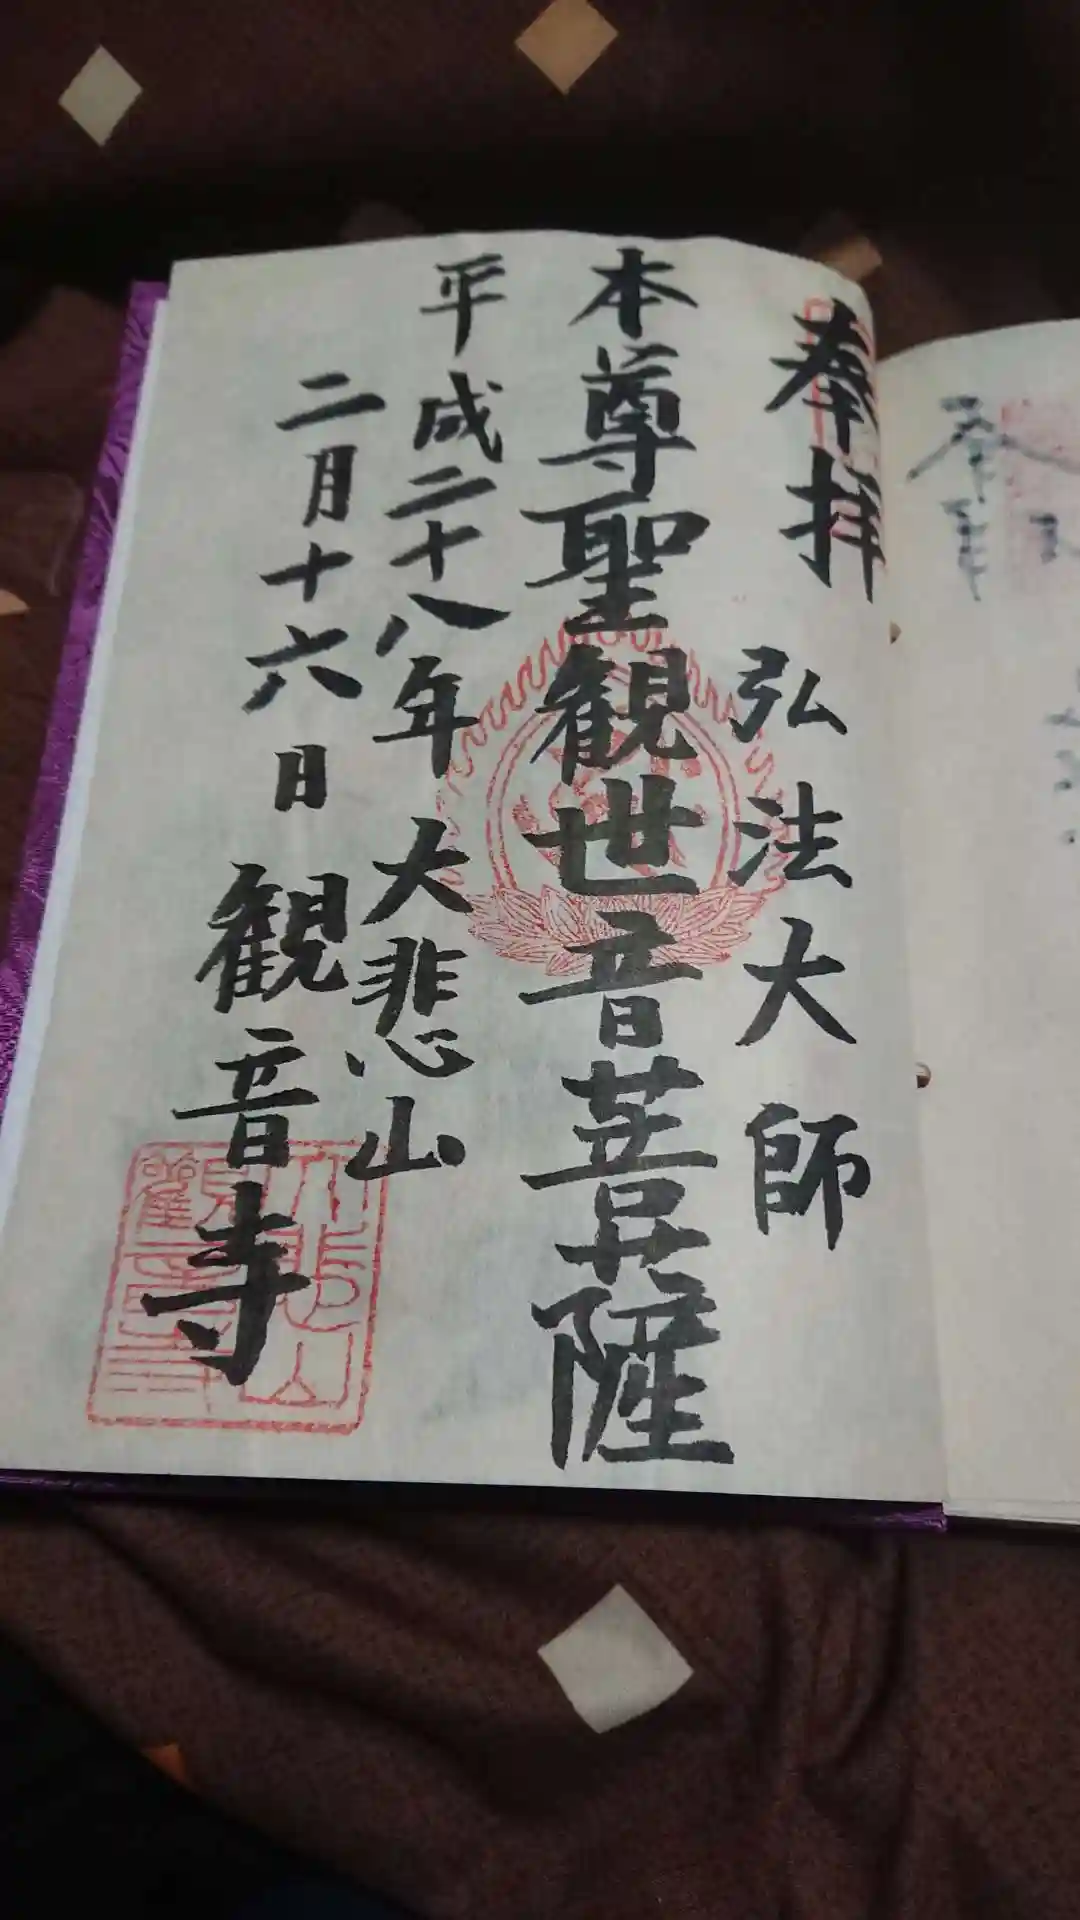 奉拝
弘法大師
本尊聖観世音菩薩
平成二十八年 大悲山
二月十六日 観音寺